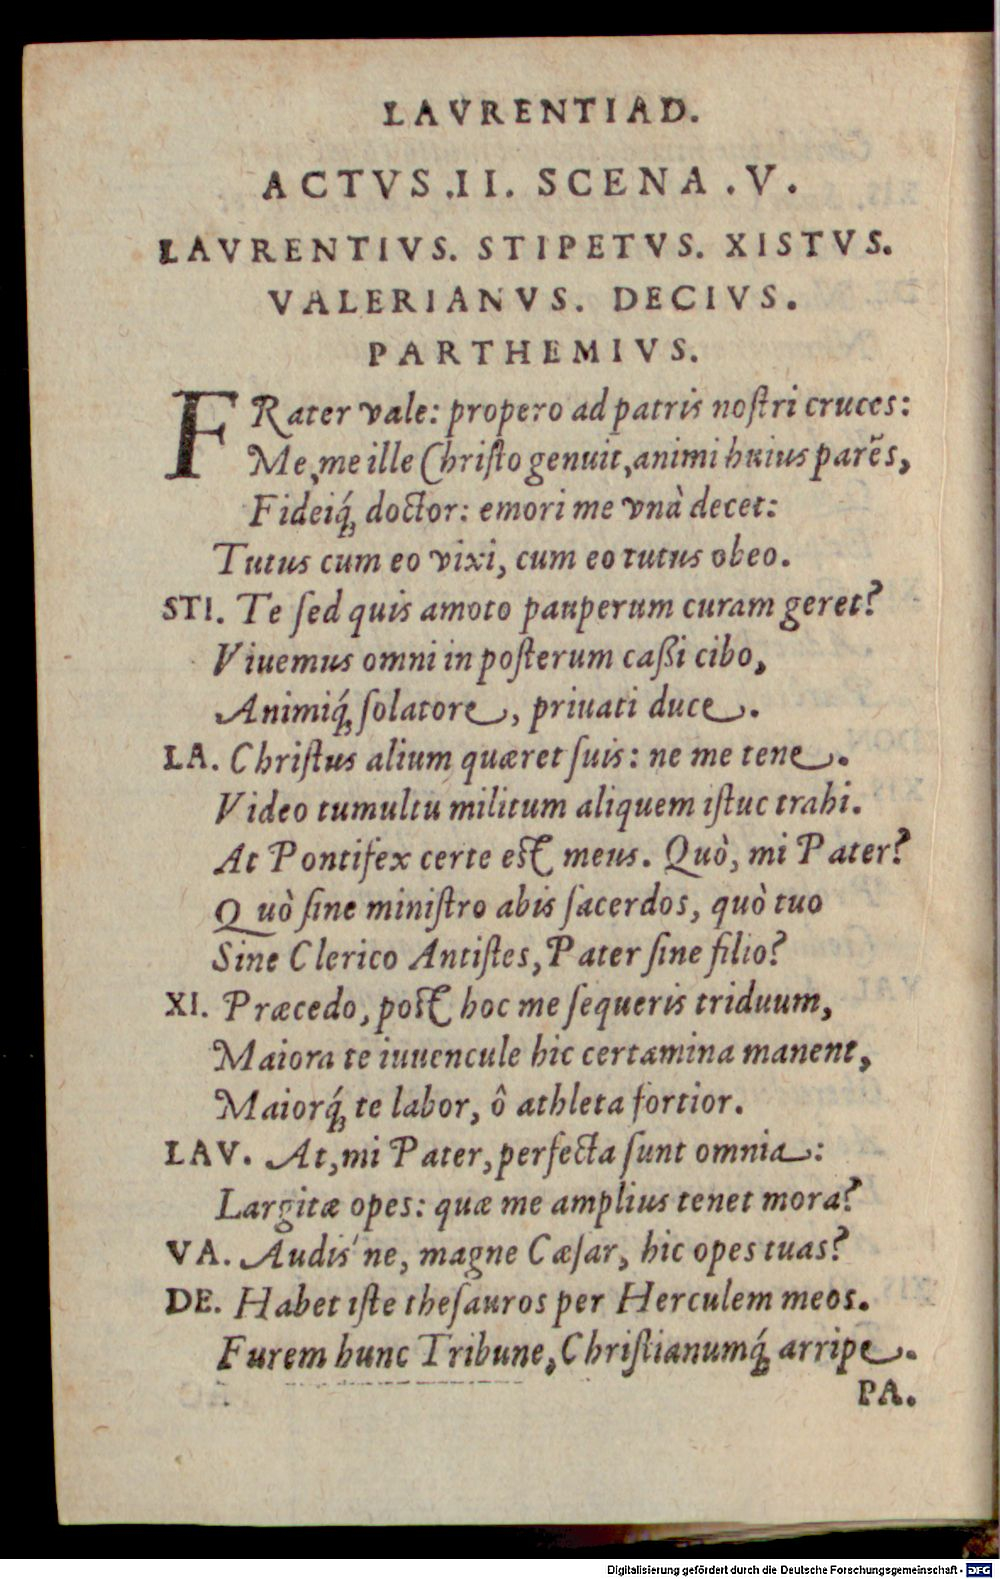 LAVRENTIAD.
ACTVS .II. SCENA .V.
LAVRENTIVS. STIPETVS. XISTVS.
VALERIANVS. DECIVS.
PARTHEMIVS.
FRater vale: propero ad patris noſtri cruces:
Me, me ille Chriſto genuit, animi huius parẽs,
Fideiq́ꝫ doctor: emori me vnà decet:
Tutus cum eo vixi, cum eo tutus obeo.
STI. Te ſed quis amoto pauperum curam geret?
Viuemus omni in poſterum caßi cibo,
Animiq́ꝫ ſolatore, priuati duce.
LA. Chriſtus alium quæret ſuis: ne me tene.
Video tumultu militum aliquem iſtuc trahi.
At Pontifex certe eſt meus. Quò, mi Pater?
Quò ſine miniſtro abis ſacerdos, quò tuo
Sine Clerico Antiſtes, Pater ſine filio?
XI. Præcedo, poſt hoc me ſequeris triduum,
Maiora te iuuencule hic certamina manent,
Maiorq́ꝫ te labor, ô athleta fortior.
LAV. At, mi Pater, perfecta ſunt omnia:
Largitæ opes: quæ me amplius tenet mora?
VA. Audis'ne, magne Cæſar, hic opes tuas?
DE. Habet iſte theſauros per Herculem meos.
Furem hunc Tribune, Chriſtianumq́ꝫ arripe.
PA.
Digitalisierung gefördert durch die Deutsche Forschungsgemeinschaft - DFG